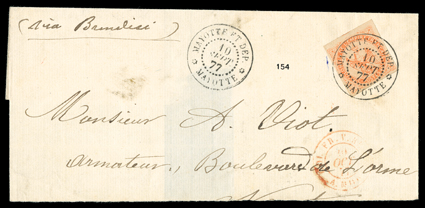 (Via Brindisi)
MAYOTTE ET DEP.
10
SEPT
77
MAYOTTE
154
MAYOTTE ET DEP.
10
SEPT
77
MAYOTTE
Monsieur A. Viot.
armateur, Boulevard de L'orme